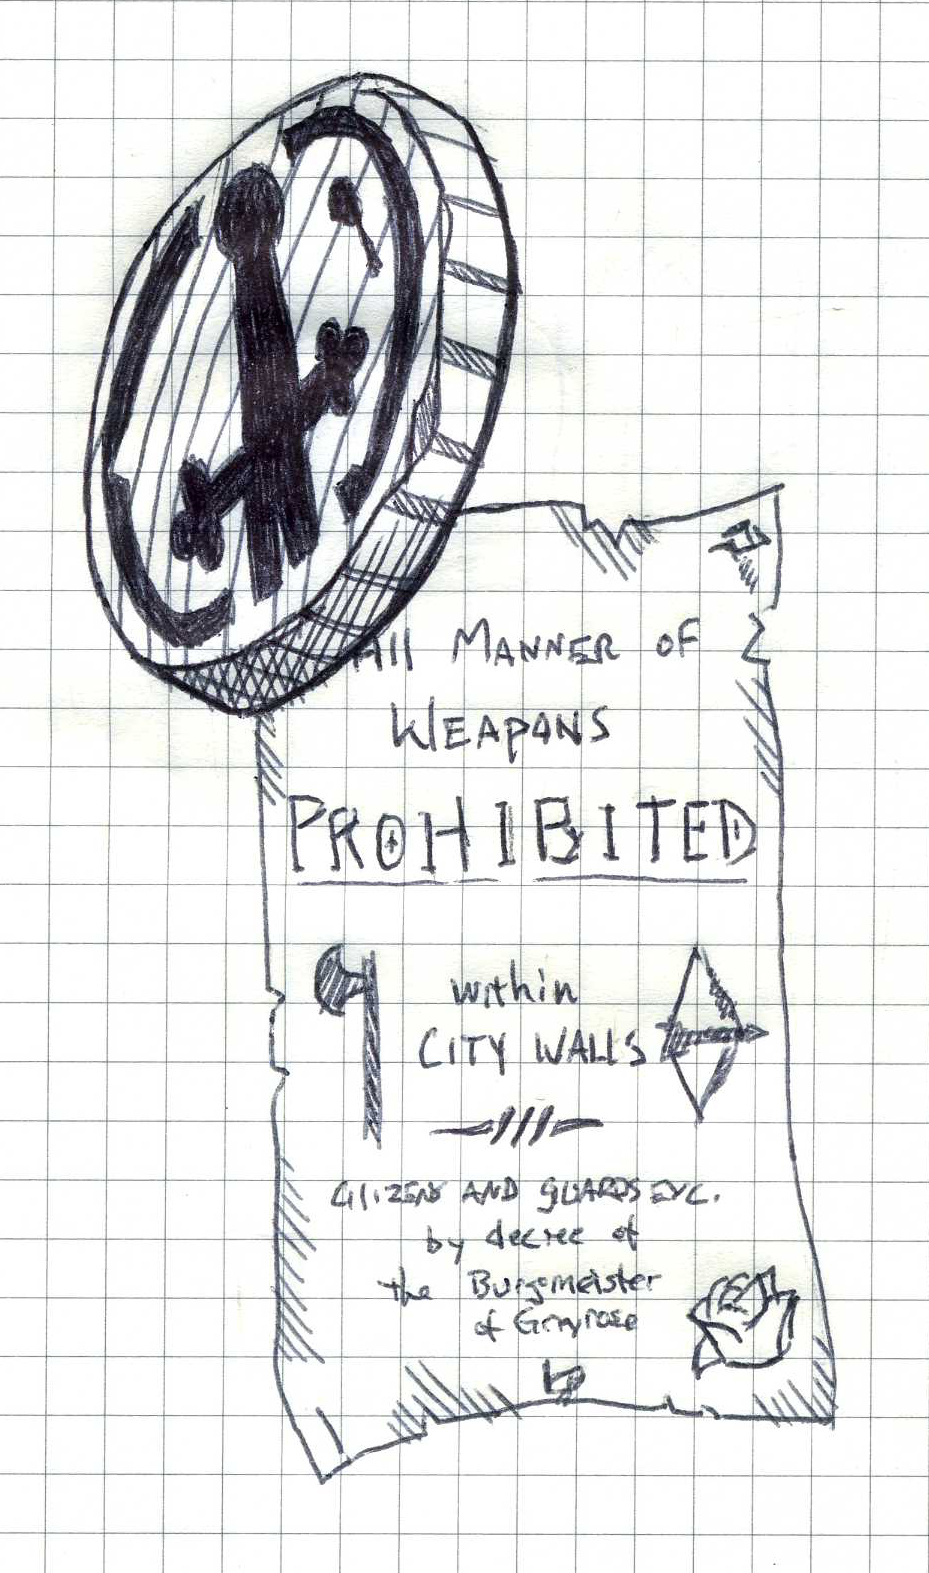 All MANNER OF
WEAPONS
PROHIBITED
within
CITY WALLS
CITIZENS AND GUARDS ETC.
by decree of
the Burgomeister
of Greyrose